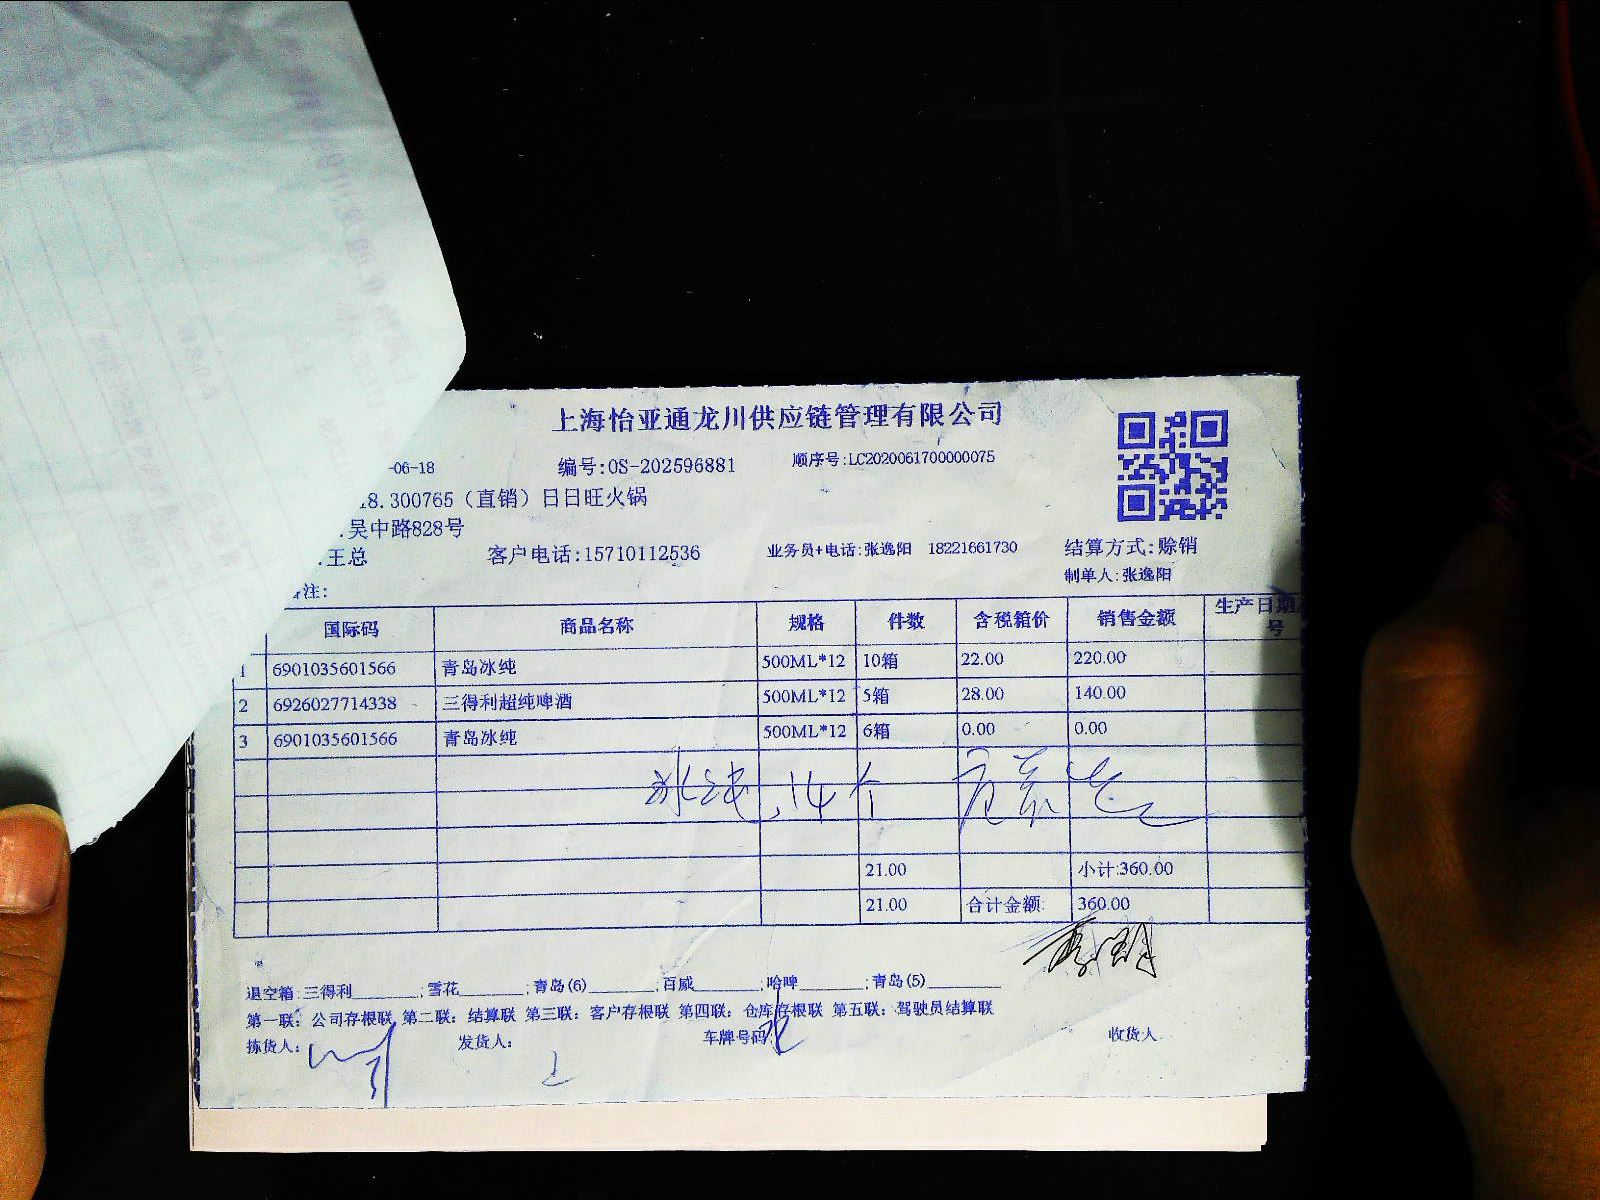 上海怡亚通龙川供应链管理有限公司
-06-18 编号:OS-202596881 顺序号:LC2020061700000075
18.300765（直销）日日旺火锅
吴中路828号
王总 客户电话:15710112536 业务员+电话:张逸阳 18221661730 结算方式:赊销
制单人:张逸阳
注:
国际码 商品名称 规格 件数 含税箱价 销售金额 生产日期 号
1 6901035601566 青岛冰纯 500ML*12 10箱 22.00 220.00
2 6926027714338 三得利超纯啤酒 500ML*12 5箱 28.00 140.00
3 6901035601566 青岛冰纯 500ML*12 6箱 0.00 0.00
冰纯,14个
21.00 小计:360.00
21.00 合计金额: 360.00
退空箱:三得利______;雪花______;青岛(6)______;百威______;哈啤______;青岛(5)______
第一联：公司存根联 第二联：结算联 第三联：客户存根联 第四联：仓库存根联 第五联：驾驶员结算联
拣货人: 发货人: 车牌号码 收货人